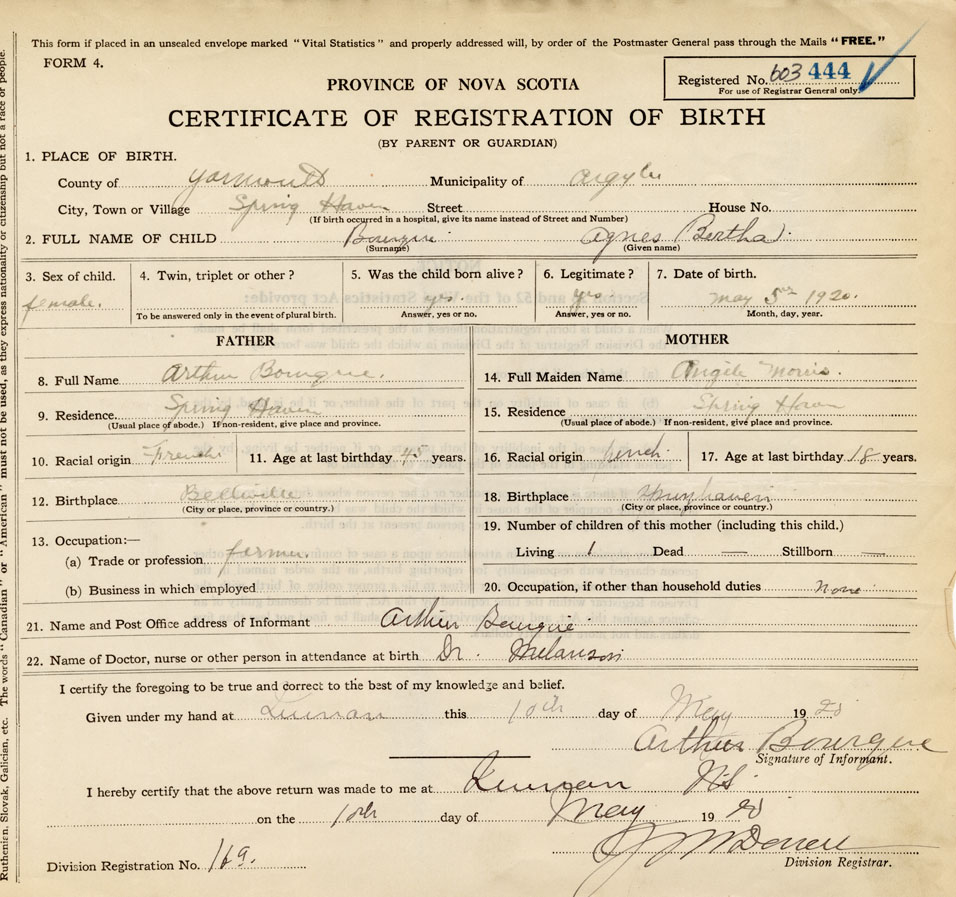 This form if placed in an unsealed envelope marked "Vital Statistics" and properly addressed will, by order of the Postmaster General pass through the Mails "FREE."
FORM 4.
Registered No. 603 444
For use of Registrar General only.
PROVINCE OF NOVA SCOTIA
CERTIFICATE OF REGISTRATION OF BIRTH
(BY PARENT OR GUARDIAN)
1. PLACE OF BIRTH.
County of Yarmouth Municipality of Argyle
City, Town or Village Spring Haven Street House No.
(If birth occurred in a hospital, give its name instead of Street and Number)
2. FULL NAME OF CHILD Bourque Agnes Bertha
(Surname) (Given name)
3. Sex of child. 4. Twin, triplet or other? 5. Was the child born alive? 6. Legitimate? 7. Date of birth.
female. yes. yes May 5 1920.
To be answered only in the event of plural birth. Answer, yes or no. Answer, yes or no. Month, day, year.
FATHER MOTHER
8. Full Name Arthur Bourque. 14. Full Maiden Name Angile Morris.
9. Residence Spring Haven 15. Residence Spring Haven
(Usual place of abode.) If non-resident, give place and province. (Usual place of abode.) If non-resident, give place and province.
10. Racial origin French 11. Age at last birthday 45 years. 16. Racial origin french. 17. Age at last birthday 18 years.
12. Birthplace Bellville 18. Birthplace Springhaven
(City or place, province or country.) (City or place, province or country.)
13. Occupation:— 19. Number of children of this mother (including this child.)
(a) Trade or profession farmer. Living 1 Dead — Stillborn —
(b) Business in which employed 20. Occupation, if other than household duties none
21. Name and Post Office address of Informant Arthur Bourque
22. Name of Doctor, nurse or other person in attendance at birth Dr. Melanson
I certify the foregoing to be true and correct to the best of my knowledge and belief.
Given under my hand at Quinan this 10th day of May 1920
Arthur Bourque
Signature of Informant.
I hereby certify that the above return was made to me at Quinan NS
on the 10th day of May 1920
Division Registration No. 169. Division Registrar.
Ruthenian, Slovak, Galician, etc. The words "Canadian" or "American" must not be used, as they express nationality or citizenship but not a race or people.